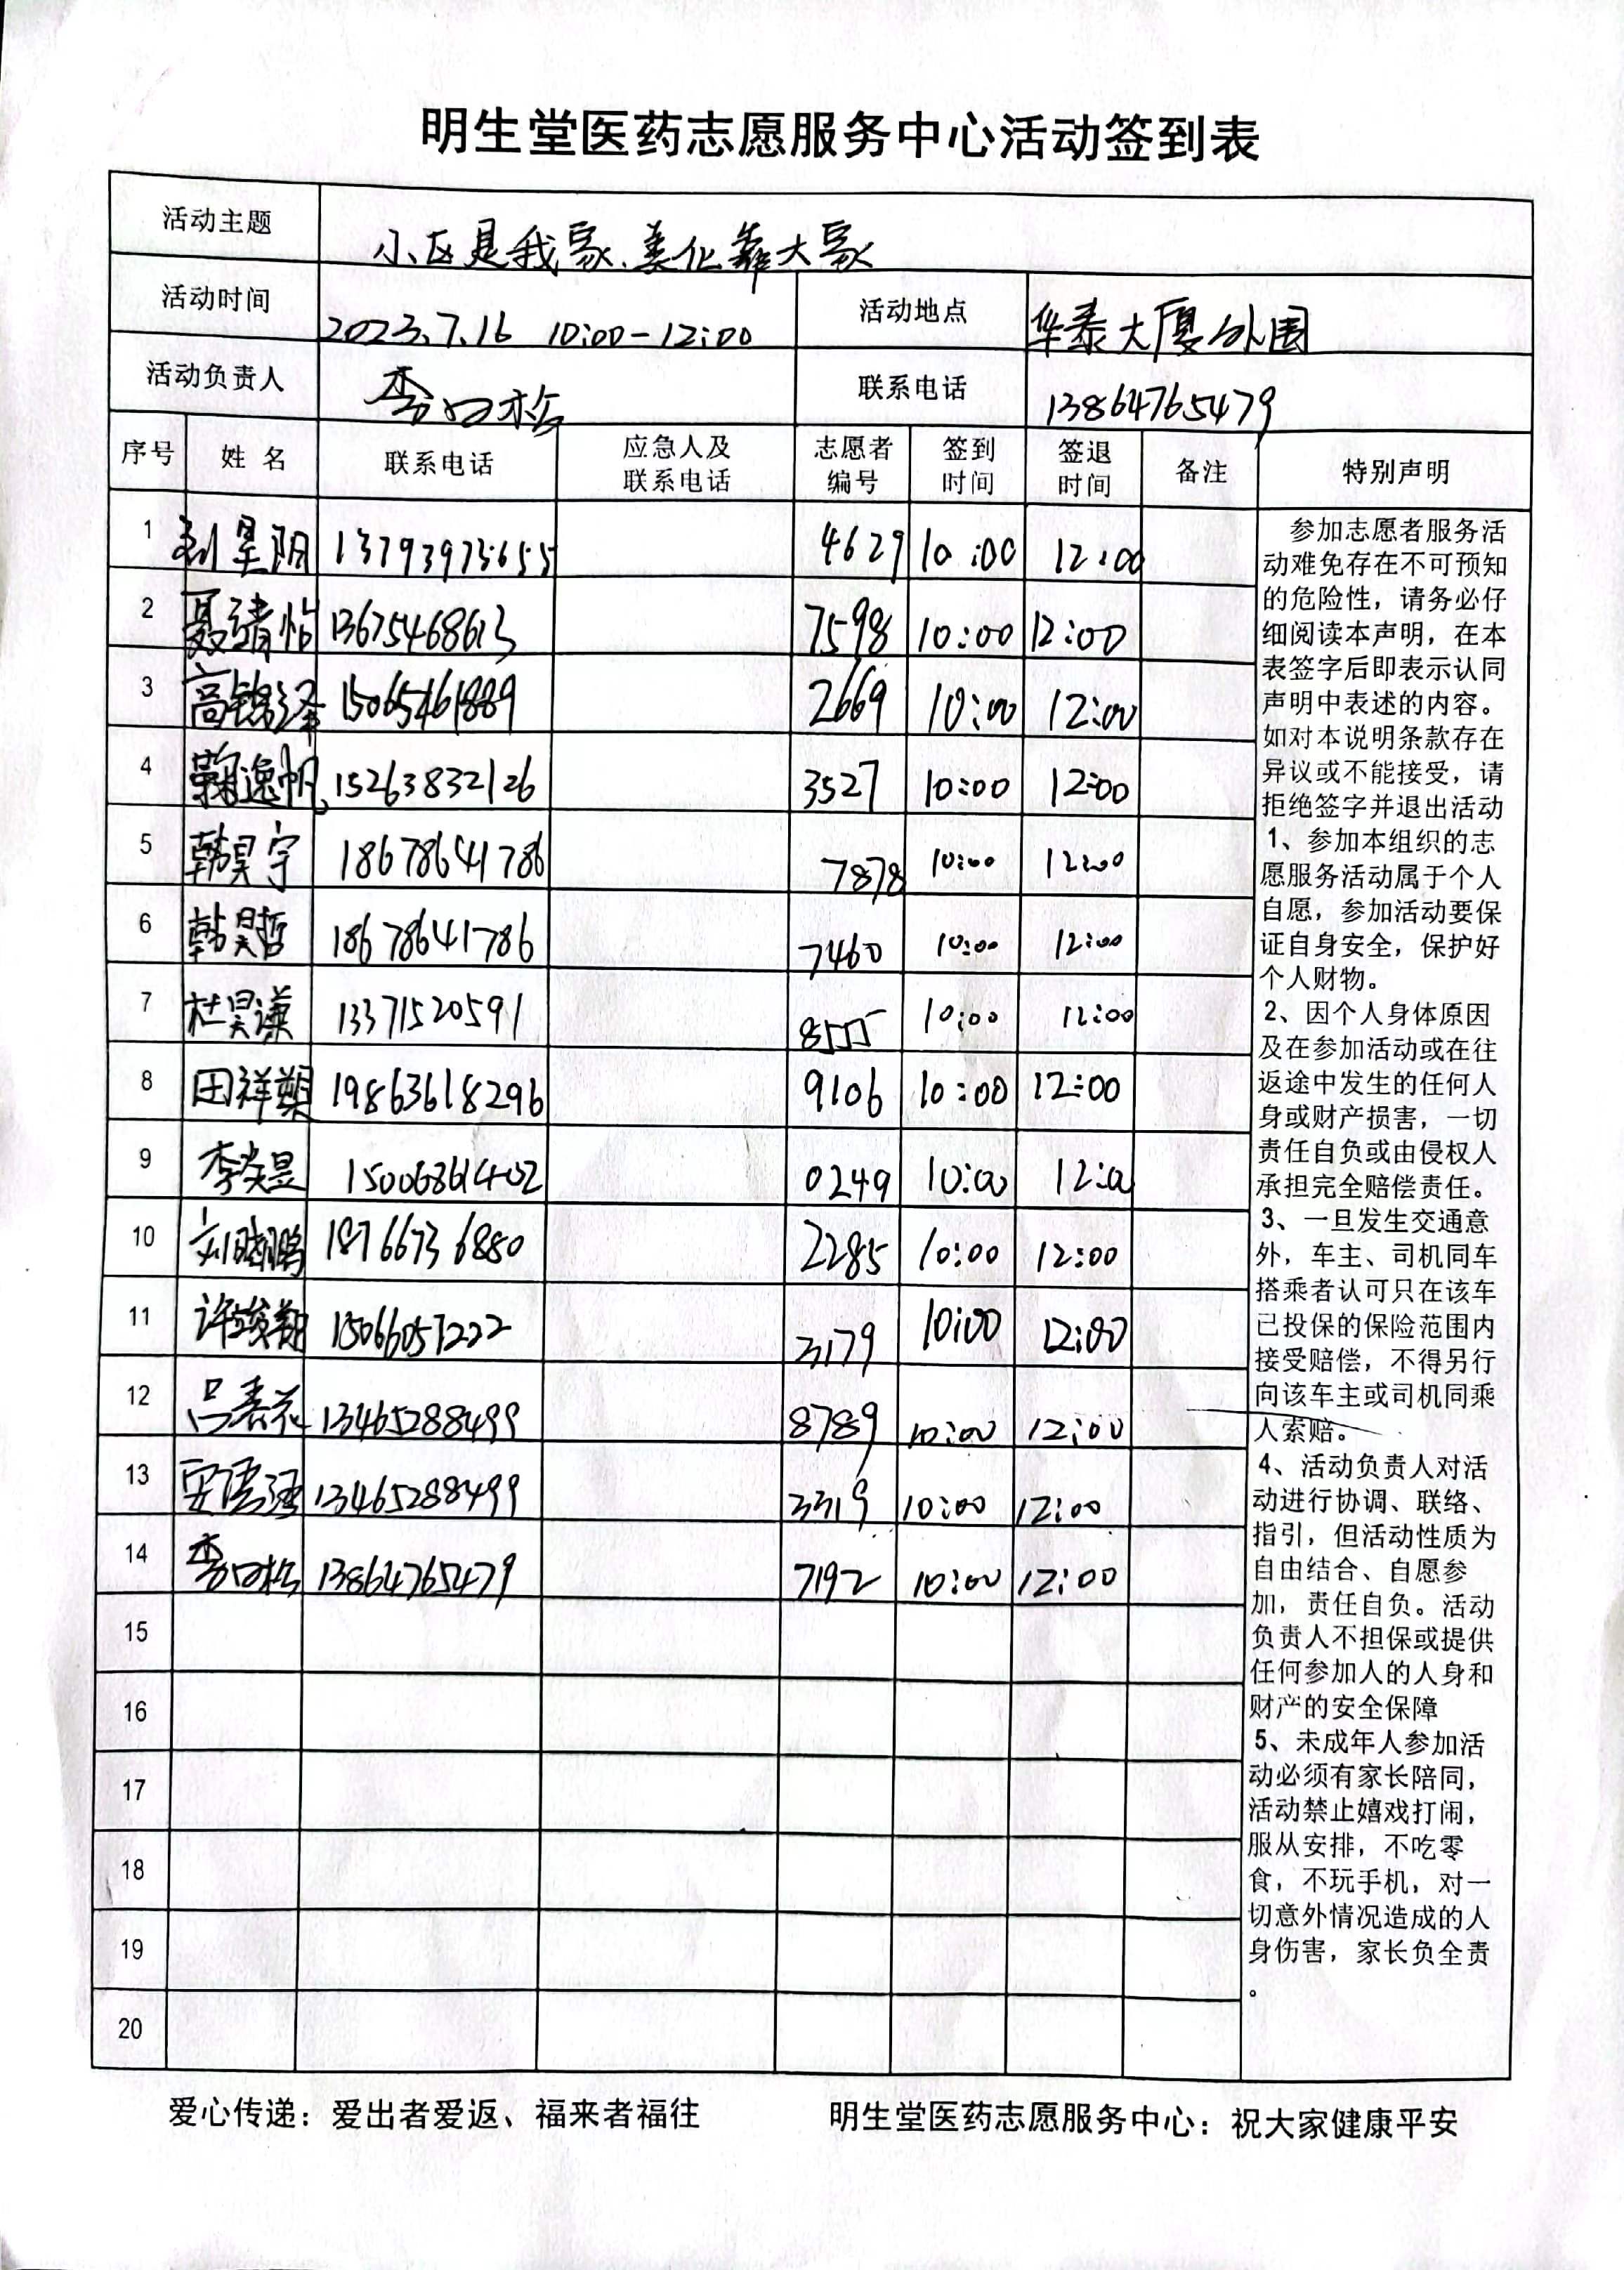 明生堂医药志愿服务中心活动签到表
活动主题 小区是我家、美化靠大家
活动时间 2023.7.16 10:00-12:00 活动地点 华泰大厦外围
活动负责人 李 联系电话 13864765479
序号 姓 名 联系电话 应急人及联系电话 志愿者编号 签到时间 签退时间 备注 特别声明
1 13793973655 4629 10:00 12:00
2 聂靖怡 13675468613 7598 10:00 12:00
3 高锦泽 15065461889 2669 10:00 12:00
4 鞠逸帆 15263832126 3527 10:00 12:00
5 韩昊宇 18678641786 7878 10:00 12:00
6 韩昊哲 18678641786 7460 10:00 12:00
7 杜昊谦 13371520591 8555 10:00 12:00
8 田祥 19863618296 9106 10:00 12:00
9 李奕昱 15006861402 0249 10:00 12:00
10 刘晓鹏 18766736880 2285 10:00 12:00
11 许 15066057222 3179 10:00 12:00
12 吕春花 13465288499 8789 10:00 12:00
13 13465288499 3319 10:00 12:00
14 李 13864765479 7192 10:00 12:00
15
16
17
18
19
20
参加志愿者服务活
动难免存在不可预知
的危险性，请务必仔
细阅读本声明，在本
表签字后即表示认同
声明中表述的内容。
如对本说明条款存在
异议或不能接受，请
拒绝签字并退出活动
1、参加本组织的志
愿服务活动属于个人
自愿，参加活动要保
证自身安全，保护好
个人财物。
2、因个人身体原因
及在参加活动或在往
返途中发生的任何人
身或财产损害，一切
责任自负或由侵权人
承担完全赔偿责任。
3、一旦发生交通意
外，车主、司机同车
搭乘者认可只在该车
已投保的保险范围内
接受赔偿，不得另行
向该车主或司机同乘
人索赔。
4、活动负责人对活
动进行协调、联络、
指引，但活动性质为
自由结合、自愿参
加，责任自负。活动
负责人不担保或提供
任何参加人的人身和
财产的安全保障
5、未成年人参加活
动必须有家长陪同，
活动禁止嬉戏打闹，
服从安排，不吃零
食，不玩手机，对一
切意外情况造成的人
身伤害，家长负全责
。
爱心传递：爱出者爱返、福来者福往 明生堂医药志愿服务中心：祝大家健康平安